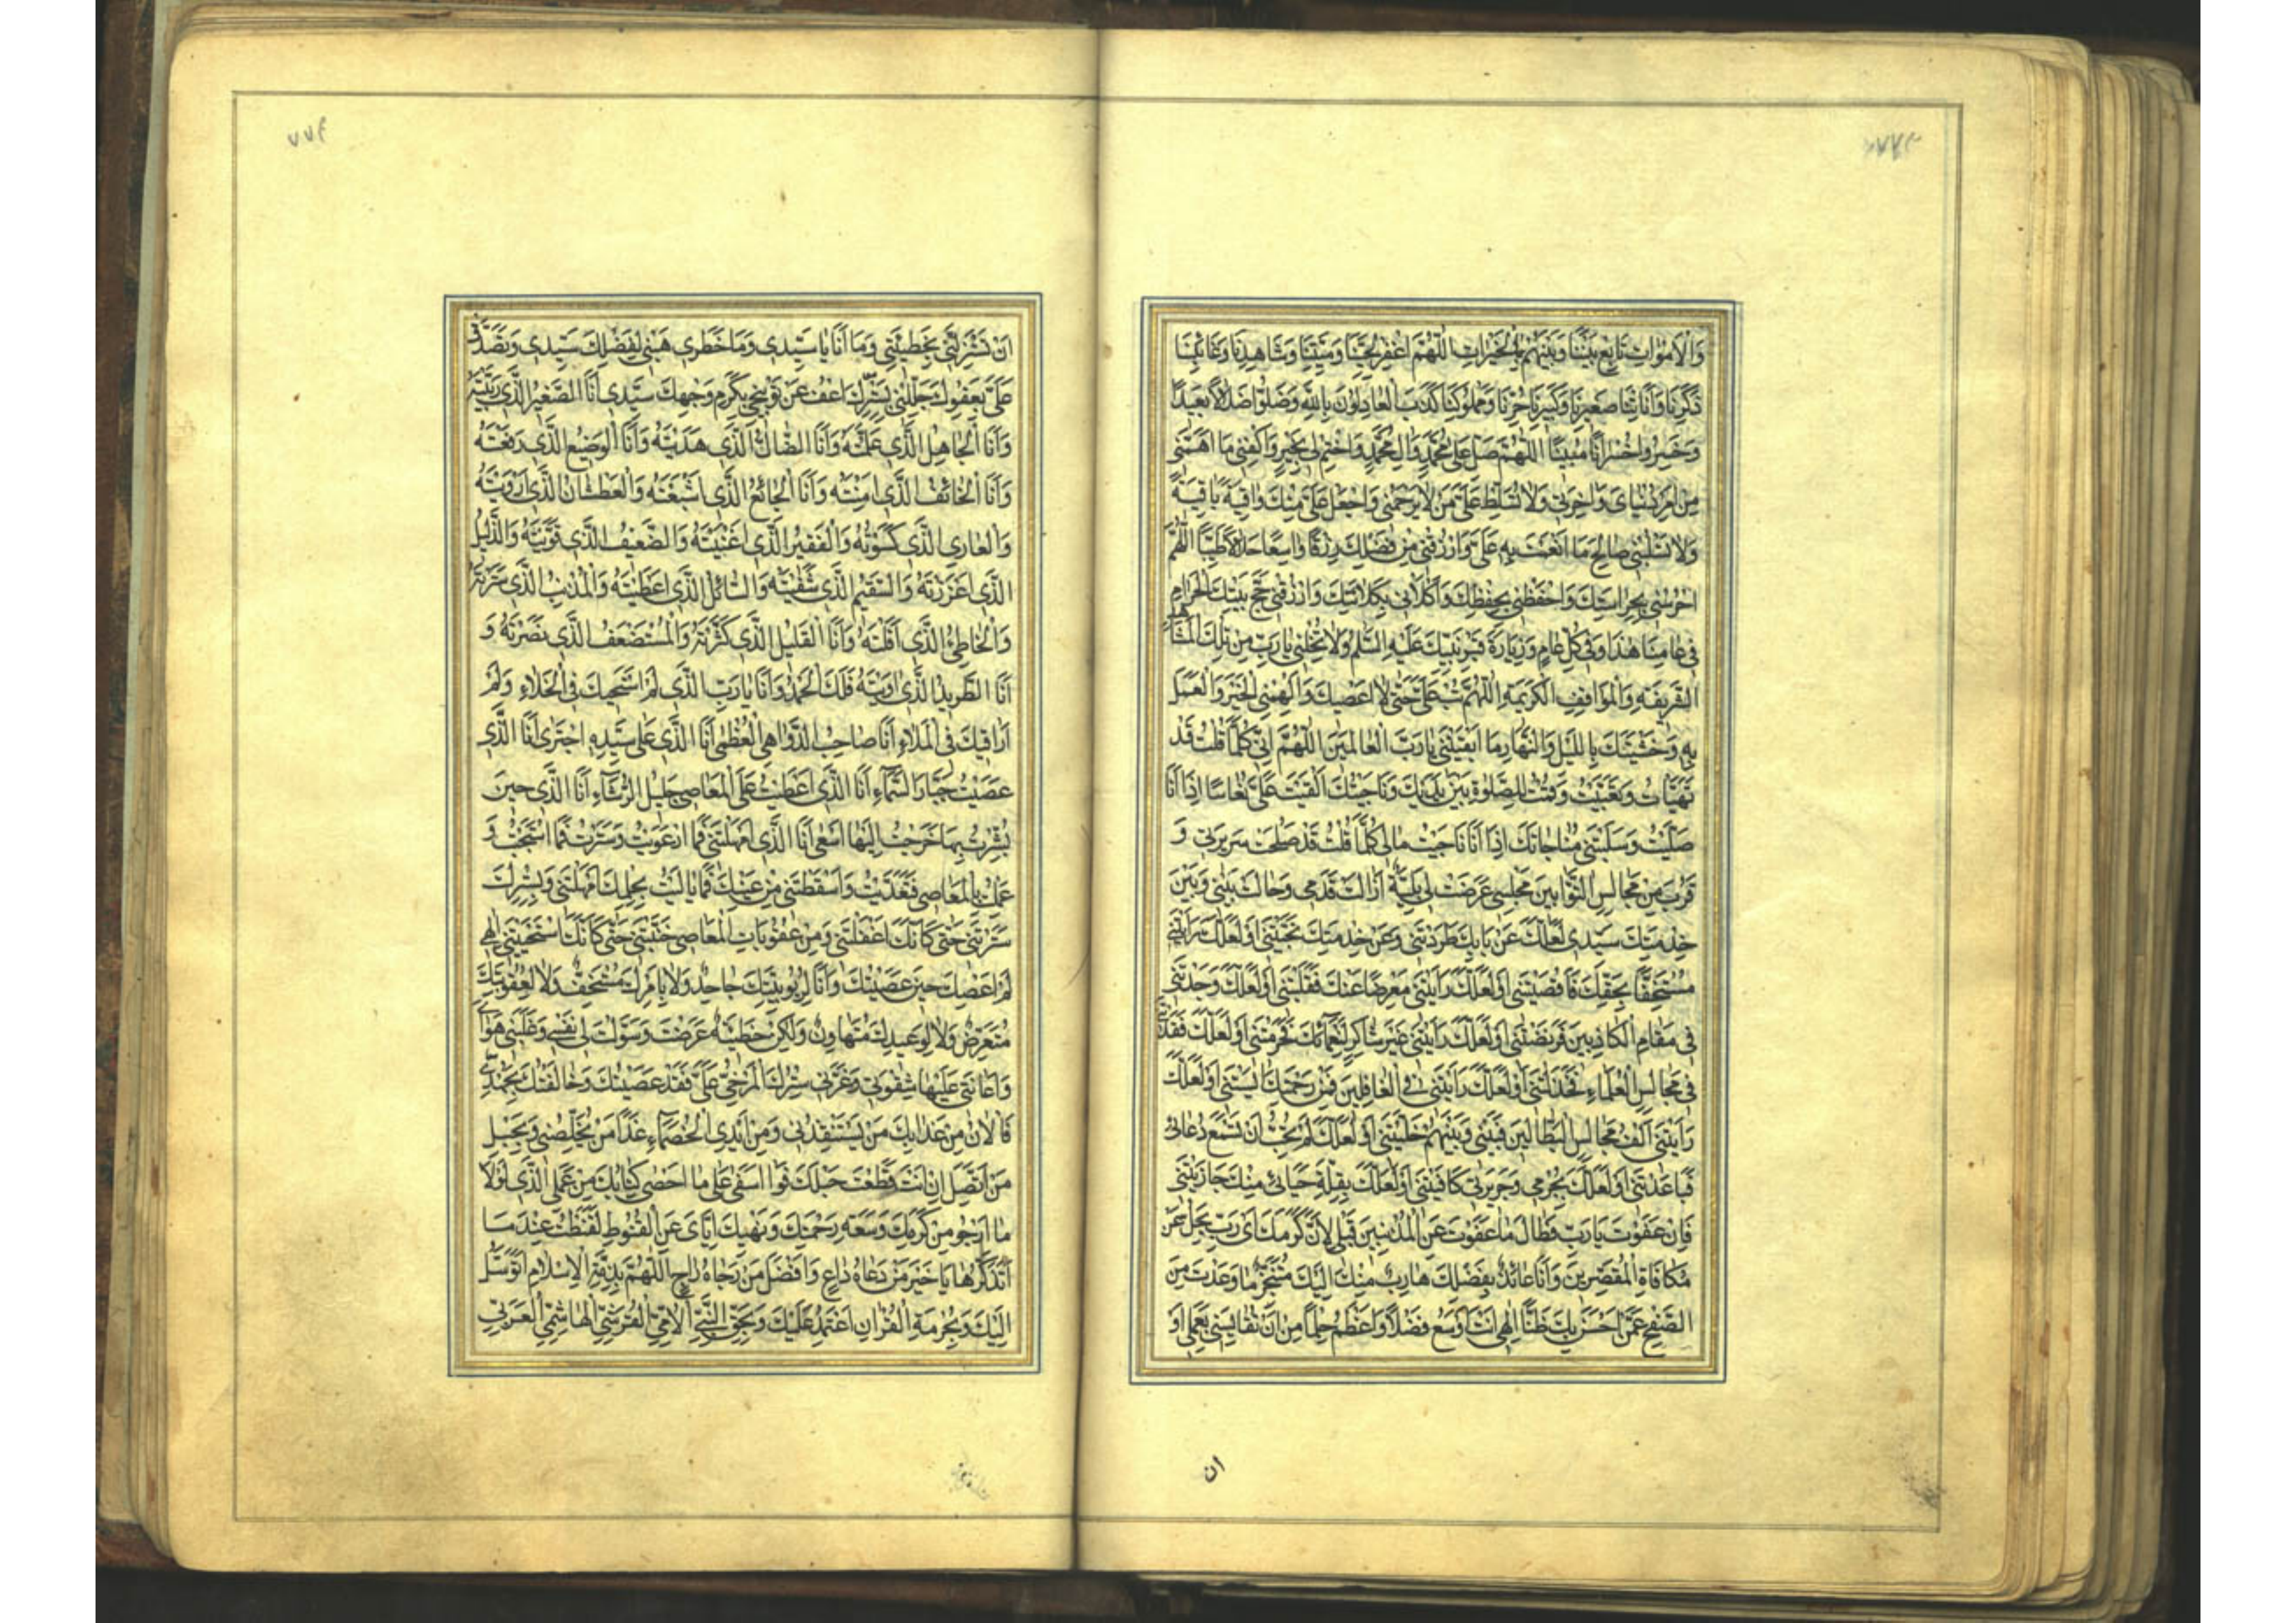 وَالْأَمْوَاتِ تَابِعْ بَيْنَنَا وَبَيْنَهُمْ بِالْخَيْرَاتِ اللّٰهُمَّ اغْفِرْ لِحَيِّنَا وَمَيِّتِنَا وَشَاهِدِنَا وَغَائِبِنَا
ذَكَرِنَا وَأُنْثَانَا صَغِيرِنَا وَكَبِيرِنَا حُرِّنَا وَمَمْلُوكِنَا كَذَبَ الْعَادِلُونَ بِاللّٰهِ وَضَلُّوا ضَلَالًا بَعِيدًا
وَخَسِرُوا خُسْرَانًا مُبِينًا اللّٰهُمَّ صَلِّ عَلَى مُحَمَّدٍ وَآلِ مُحَمَّدٍ وَاخْتِمْ لِي بِخَيْرٍ وَاكْفِنِي مَا أَهَمَّنِي
مِنْ أَمْرِ دُنْيَايَ وَآخِرَتِي وَلَا تُسَلِّطْ عَلَيَّ مَنْ لَا يَرْحَمُنِي وَاجْعَلْ عَلَيَّ مِنْكَ وَاقِيَةً بَاقِيَةً
وَلَا تَسْلُبْنِي صَالِحَ مَا أَنْعَمْتَ بِهِ عَلَيَّ وَارْزُقْنِي مِنْ فَضْلِكَ رِزْقًا وَاسِعًا حَلَالًا طَيِّبًا اللّٰهُمَّ
احْرُسْنِي بِحِرَاسَتِكَ وَاحْفَظْنِي بِحِفْظِكَ وَاكْلَأْنِي بِكِلَائَتِكَ وَارْزُقْنِي حَجَّ بَيْتِكَ الْحَرَامِ
فِي عَامِنَا هٰذَا وَفِي كُلِّ عَامٍ وَزِيَارَةَ قَبْرِ نَبِيِّكَ عَلَيْهِ السَّلٰمُ وَلَا تُخْلِنِي يَا رَبِّ مِنْ تِلْكَ الْمَشَاهِدِ
الشَّرِيفَةِ وَالْمَوَاقِفِ الْكَرِيمَةِ اللّٰهُمَّ تُبْ عَلَيَّ حَتَّى لَا أَعْصِيَكَ وَأَلْهِمْنِي الْخَيْرَ وَالْعَمَلَ
بِهِ وَخَشْيَتَكَ بِاللَّيْلِ وَالنَّهَارِ مَا أَبْقَيْتَنِي يَا رَبَّ الْعَالَمِينَ اللّٰهُمَّ إِنِّي كُلَّمَا قُلْتُ قَدْ
تَهَيَّأْتُ وَتَعَبَّيْتُ وَقُمْتُ لِلصَّلٰوةِ بَيْنَ يَدَيْكَ وَنَاجَيْتُكَ أَلْقَيْتَ عَلَيَّ نُعَاسًا إِذَا أَنَا
صَلَّيْتُ وَسَلَبْتَنِي مُنَاجَاتَكَ إِذَا أَنَا نَاجَيْتُ مَالِي كُلَّمَا قُلْتُ قَدْ صَلُحَتْ سَرِيرَتِي وَ
قَرُبَ مِنْ مَجَالِسِ التَّوَّابِينَ مَجْلِسِي عَرَضَتْ لِي بَلِيَّةٌ أَزَالَتْ قَدَمِي وَحَالَتْ بَيْنِي وَبَيْنَ
خِدْمَتِكَ سَيِّدِي لَعَلَّكَ عَنْ بَابِكَ طَرَدْتَنِي وَعَنْ خِدْمَتِكَ نَحَّيْتَنِي أَوْ لَعَلَّكَ رَأَيْتَنِي
مُسْتَخِفًّا بِحَقِّكَ فَأَقْصَيْتَنِي أَوْ لَعَلَّكَ رَأَيْتَنِي مُعْرِضًا عَنْكَ فَقَلَيْتَنِي أَوْ لَعَلَّكَ وَجَدْتَنِي
فِي مَقَامِ الْكَاذِبِينَ فَرَفَضْتَنِي أَوْ لَعَلَّكَ رَأَيْتَنِي غَيْرَ شَاكِرٍ لِنَعْمَائِكَ فَحَرَمْتَنِي أَوْ لَعَلَّكَ فَقَدْتَنِي
فِي مَجَالِسِ الْعُلَمَاءِ فَخَذَلْتَنِي أَوْ لَعَلَّكَ رَأَيْتَنِي فِي الْغَافِلِينَ فَمِنْ رَحْمَتِكَ آيَسْتَنِي أَوْ لَعَلَّكَ
رَأَيْتَنِي آلَفُ مَجَالِسَ الْبَطَّالِينَ فَبَيْنِي وَبَيْنَهُمْ خَلَّيْتَنِي أَوْ لَعَلَّكَ لَمْ تُحِبَّ أَنْ تَسْمَعَ دُعَائِي
فَبَاعَدْتَنِي أَوْ لَعَلَّكَ بِجُرْمِي وَجَرِيرَتِي كَافَيْتَنِي أَوْ لَعَلَّكَ بِقِلَّةِ حَيَائِي مِنْكَ جَازَيْتَنِي
فَإِنْ عَفَوْتَ يَا رَبِّ فَطَالَ مَا عَفَوْتَ عَنِ الْمُذْنِبِينَ قَبْلِي لِأَنَّ كَرَمَكَ أَيْ رَبِّ يَجِلُّ عَنْ
مُكَافَاةِ الْمُقَصِّرِينَ وَأَنَا عَائِذٌ بِفَضْلِكَ هَارِبٌ مِنْكَ إِلَيْكَ مُتَنَجِّزٌ مَا وَعَدْتَ مِنَ
الصَّفْحِ عَمَّنْ أَحْسَنَ بِكَ ظَنًّا إِلٰهِي أَنْتَ أَوْسَعُ فَضْلًا وَأَعْظَمُ حِلْمًا مِنْ أَنْ تُقَايِسَنِي بِعَمَلِي أَوْ
ان
٧٧۴
أَنْ تَسْتَزِلَّنِي بِخَطِيئَتِي وَمَا أَنَا يَا سَيِّدِي وَمَا خَطَرِي هَبْنِي لِفَضْلِكَ سَيِّدِي وَتَصَدَّقْ
عَلَيَّ بِعَفْوِكَ جَلِّلْنِي بِسِتْرِكَ وَاعْفُ عَنْ تَوْبِيخِي بِكَرَمِ وَجْهِكَ سَيِّدِي أَنَا الصَّغِيرُ الَّذِي رَبَّيْتَهُ
وَأَنَا الْجَاهِلُ الَّذِي عَلَّمْتَهُ وَأَنَا الضَّالُّ الَّذِي هَدَيْتَهُ وَأَنَا الْوَضِيعُ الَّذِي رَفَعْتَهُ
وَأَنَا الْخَائِفُ الَّذِي آمَنْتَهُ وَأَنَا الْجَائِعُ الَّذِي أَشْبَعْتَهُ وَالْعَطْشَانُ الَّذِي أَرْوَيْتَهُ
وَالْعَارِي الَّذِي كَسَوْتَهُ وَالْفَقِيرُ الَّذِي أَغْنَيْتَهُ وَالضَّعِيفُ الَّذِي قَوَّيْتَهُ وَالذَّلِيلُ
الَّذِي أَعْزَزْتَهُ وَالسَّقِيمُ الَّذِي شَفَيْتَهُ وَالسَّائِلُ الَّذِي أَعْطَيْتَهُ وَالْمُذْنِبُ الَّذِي سَتَرْتَهُ
وَالْخَاطِئُ الَّذِي أَقَلْتَهُ وَأَنَا الْقَلِيلُ الَّذِي كَثَّرْتَهُ وَالْمُسْتَضْعَفُ الَّذِي نَصَرْتَهُ وَ
أَنَا الطَّرِيدُ الَّذِي آوَيْتَهُ فَلَكَ الْحَمْدُ وَأَنَا يَا رَبِّ الَّذِي لَمْ أَسْتَحْيِكَ فِي الْخَلَاءِ وَلَمْ
أُرَاقِبْكَ فِي الْمَلَاءِ أَنَا صَاحِبُ الدَّوَاهِي الْعُظْمَى أَنَا الَّذِي عَلَى سَيِّدِهِ اجْتَرَى أَنَا الَّذِي
عَصَيْتُ جَبَّارَ السَّمَاءِ أَنَا الَّذِي أَعْطَيْتُ عَلَى الْمَعَاصِي جَلِيلَ الرُّشَاءِ أَنَا الَّذِي حِينَ
بُشِّرْتُ بِهَا خَرَجْتُ إِلَيْهَا أَسْعَى أَنَا الَّذِي أَمْهَلْتَنِي فَمَا ارْعَوَيْتُ وَسَتَرْتَ فَمَا اسْتَحْيَيْتُ وَ
عَمِلْتُ بِالْمَعَاصِي فَتَعَدَّيْتُ وَأَسْقَطْتَنِي مِنْ عَيْنِكَ فَمَا بَالَيْتُ بِحِلْمِكَ أَمْهَلْتَنِي وَبِسِتْرِكَ
سَتَرْتَنِي حَتَّى كَأَنَّكَ أَغْفَلْتَنِي وَمِنْ عُقُوبَاتِ الْمَعَاصِي جَنَّبْتَنِي حَتَّى كَأَنَّكَ اسْتَحْيَيْتَنِي إِلٰهِي
لَمْ أَعْصِكَ حِينَ عَصَيْتُكَ وَأَنَا لِرُبُوبِيَّتِكَ جَاحِدٌ وَلَا بِأَمْرِكَ مُسْتَخِفٌّ وَلَا لِعُقُوبَتِكَ
مُتَعَرِّضٌ وَلَا لِوَعِيدِكَ مُتَهَاوِنٌ وَلٰكِنْ خَطِيئَةٌ عَرَضَتْ وَسَوَّلَتْ لِي نَفْسِي وَغَلَبَنِي هَوَايَ
وَأَعَانَنِي عَلَيْهَا شِقْوَتِي وَغَرَّنِي سِتْرُكَ الْمُرْخَى عَلَيَّ فَقَدْ عَصَيْتُكَ وَخَالَفْتُكَ بِجُهْدِي
فَالْآنَ مِنْ عَذَابِكَ مَنْ يَسْتَنْقِذُنِي وَمِنْ أَيْدِي الْخُصَمَاءِ غَدًا مَنْ يُخَلِّصُنِي وَبِحَبْلِ
مَنْ أَتَّصِلُ إِنْ أَنْتَ قَطَعْتَ حَبْلَكَ فَوَا أَسَفَى عَلَى مَا أَحْصَى كِتَابُكَ مِنْ عَمَلِي الَّذِي لَوْلَا
مَا أَرْجُو مِنْ كَرَمِكَ وَسَعَةِ رَحْمَتِكَ وَنَهْيِكَ إِيَّايَ عَنِ الْقُنُوطِ لَقَنَطْتُ عِنْدَ مَا
أَتَذَكَّرُهَا يَا خَيْرَ مَنْ دَعَاهُ دَاعٍ وَأَفْضَلَ مَنْ رَجَاهُ رَاجٍ اللّٰهُمَّ بِذِمَّةِ الْإِسْلَامِ أَتَوَسَّلُ
إِلَيْكَ وَبِحُرْمَةِ الْقُرْآنِ أَعْتَمِدُ عَلَيْكَ وَبِحَقِّ النَّبِيِّ الْأُمِّيِّ الْقُرَشِيِّ الْهَاشِمِيِّ الْعَرَبِيِّ